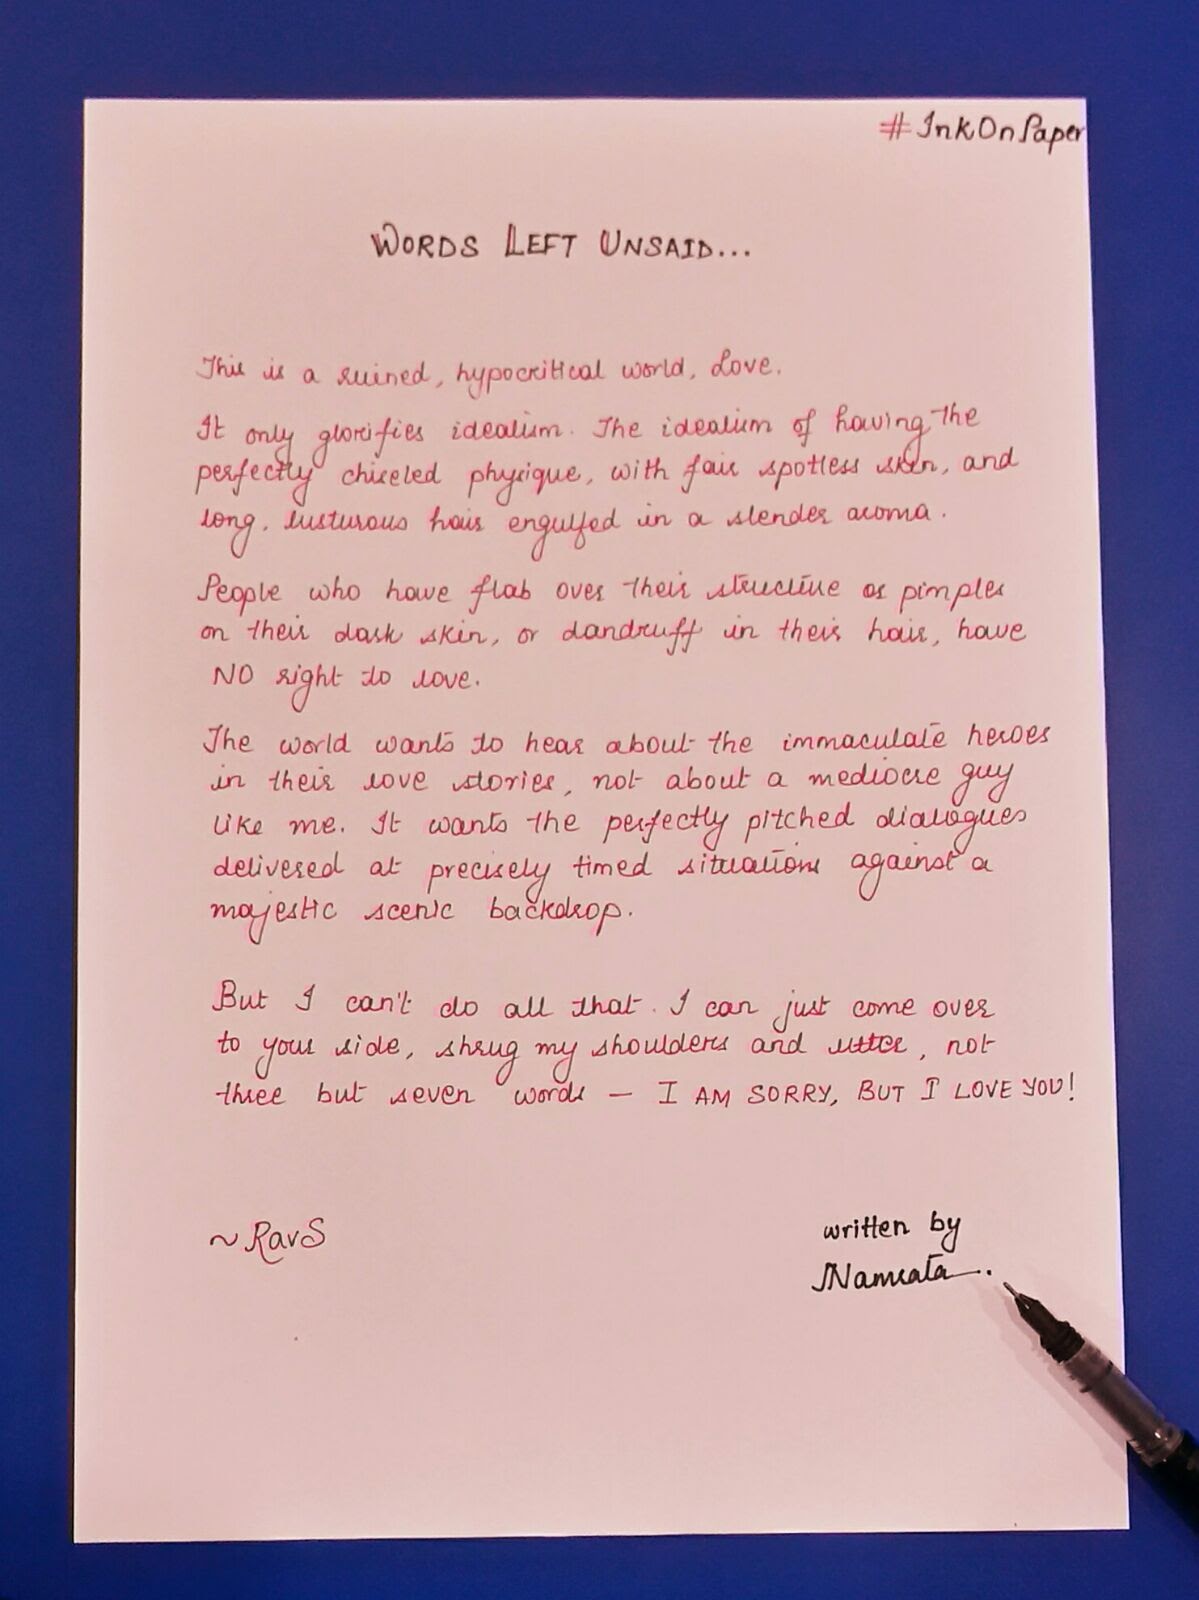 #InkOnPaper
WORDS LEFT UNSAID...
This is a ruined, hypocritical world, Love.
It only glorifies idealism. The idealism of having the
perfectly chiseled physique, with fair spotless skin, and
long, lusturous hair engulfed in a slender aroma.
People who have flab over their structure or pimples
on their dark skin, or dandruff in their hair, have
NO right to love.
The world wants to hear about the immaculate heroes
in their love stories, not about a mediocre guy
like me. It wants the perfectly pitched dialogues
delivered at precisely timed situations against a
majestic scenic backdrop.
But I can't do all that. I can just come over
to your side, shrug my shoulders and utter, not
three but seven words — I AM SORRY, BUT I LOVE YOU!
~ RavS
written by
Namrata